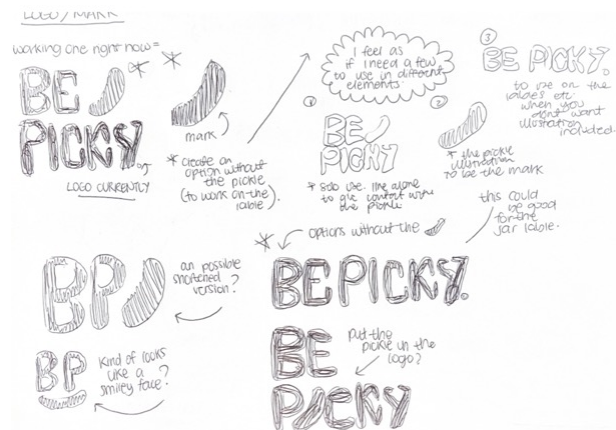 LOGO / MARK
working one right now =
BE
PICKY.
LOGO CURRENTLY
mark
* create an
option without
the pickle
(to work on the
lable).
I feel as
if I need a few
to use in different
elements.
①
BE
PICKY
* Solo use. like alone
to give context with
the pickle
②
* the pickle
illustration
to be the mark
③
BE PICKY.
to use on the
lables etc.
when you
don't want
illustration
included.
this could
be good
for the
jar lable.
* options without the
BE PICKY.
BP
an possible
shortened
version?
BP
kind of looks
like a
smiley face?
BE
PICKY
Put the
pickle in the
logo?